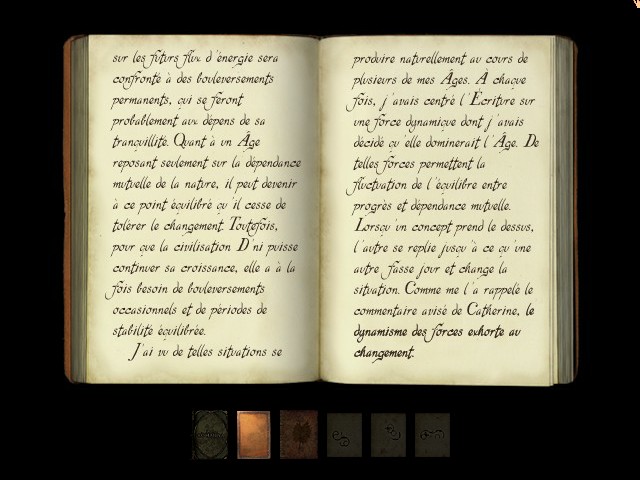 sur les futurs flux d'énergie sera
confronté à des bouleversements
permanents, qui se feront
probablement aux dépens de sa
tranquillité. Quant à un Âge
reposant seulement sur la dépendance
mutuelle de la nature, il peut devenir
à ce point équilibré qu'il cesse de
tolérer le changement. Toutefois,
pour que la civilisation D'ni puisse
continuer sa croissance, elle a à la
fois besoin de bouleversements
occasionnels et de périodes de
stabilité équilibrée.
J'ai vu de telles situations se
produire naturellement au cours de
plusieurs de mes Âges. À chaque
fois, j'avais centré l'Écriture sur
une force dynamique dont j'avais
décidé qu'elle dominerait l'Âge. De
telles forces permettent la
fluctuation de l'équilibre entre
progrès et dépendance mutuelle.
Lorsqu'un concept prend le dessus,
l'autre se replie jusqu'à ce qu'une
autre fasse jour et change la
situation. Comme me l'a rappelé le
commentaire avisé de Catherine, le
dynamisme des forces exhorte au
changement.